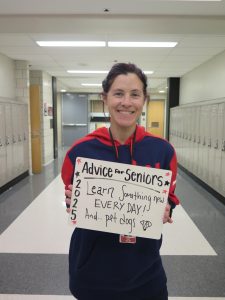 Advice for Seniors
2025
Learn something new
EVERY DAY!
And... pet dogs